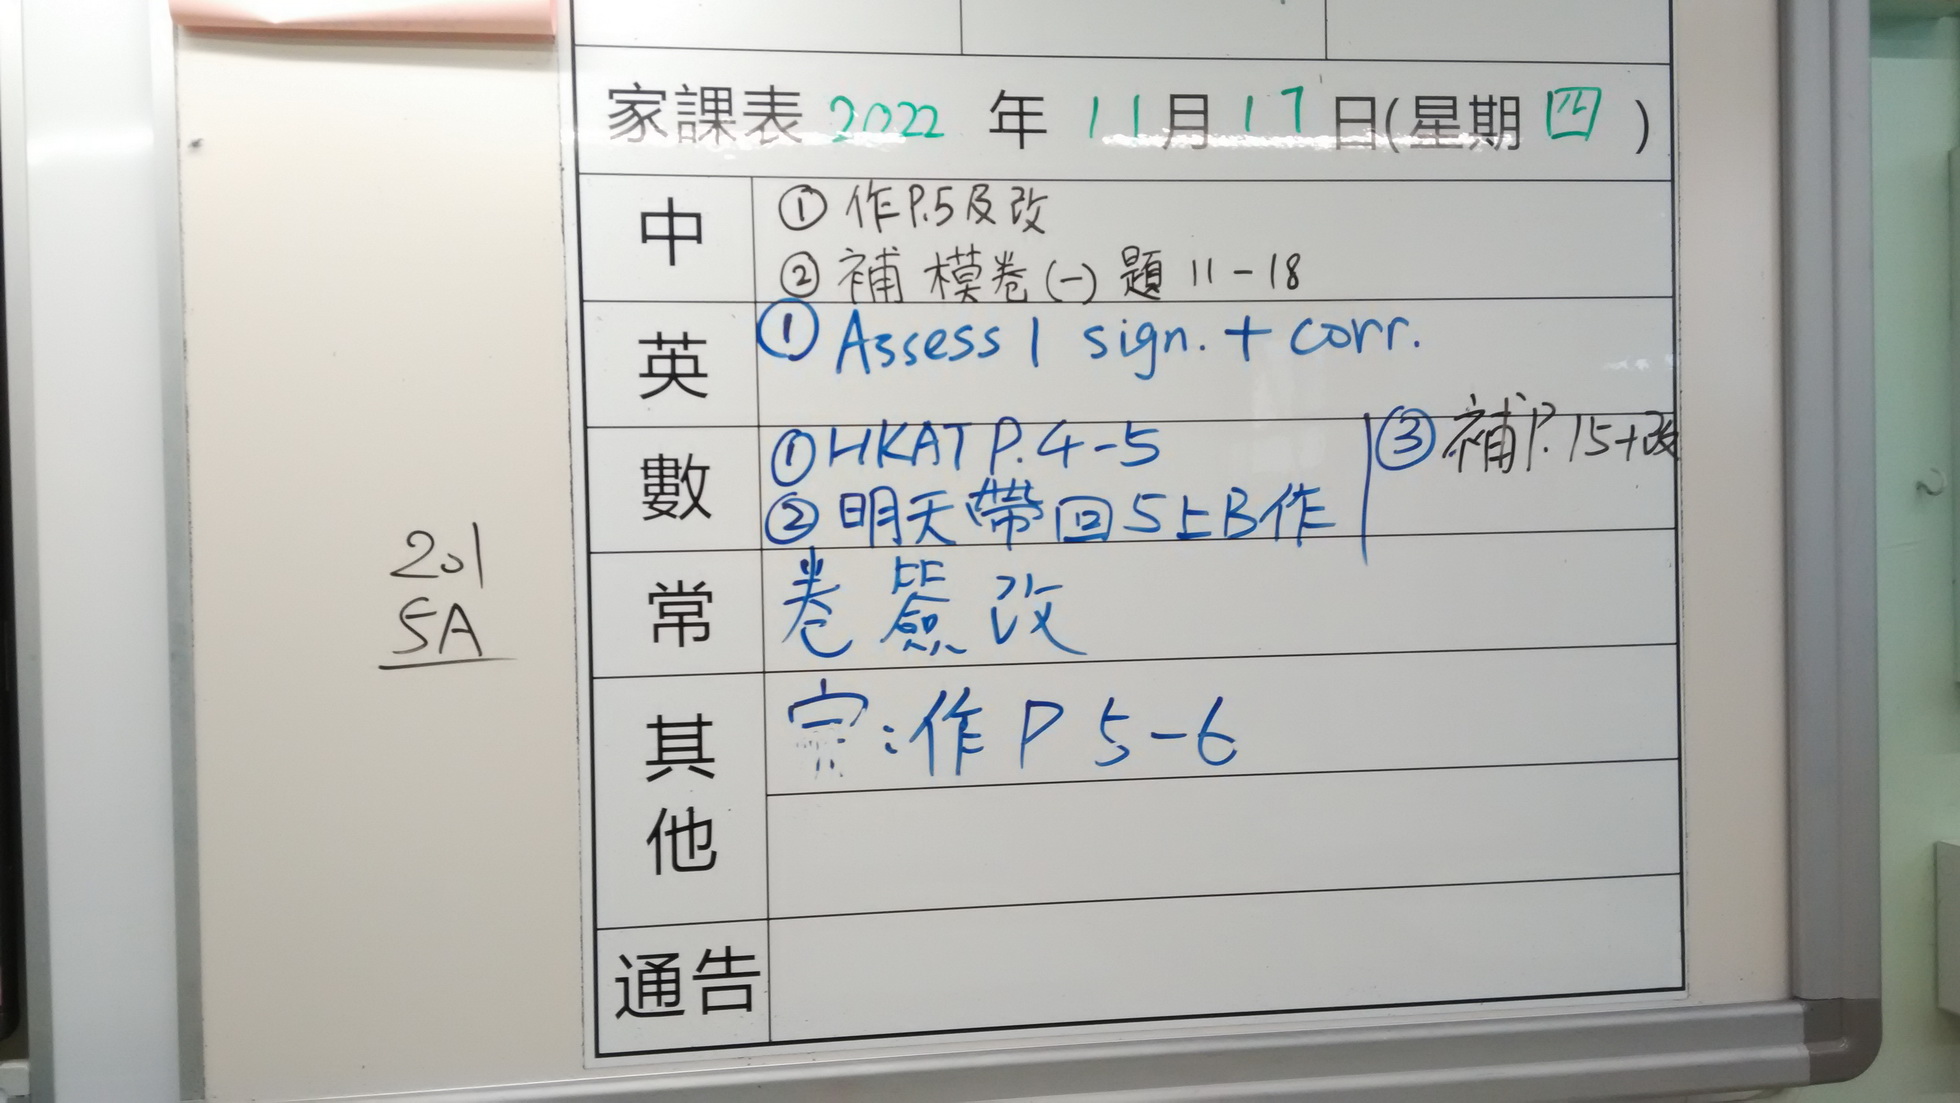 家課表 2022 年 11月 17日(星期 四)
中
① 作P.5及改
② 補 模卷(一) 題 11-18
英
① Assess 1 sign. + corr.
數
① HKAT P.4-5
② 明天帶回5上B作
③ 補P.15+改
常
卷 簽 改
其他
宗:作 P 5-6
通告
201
5A